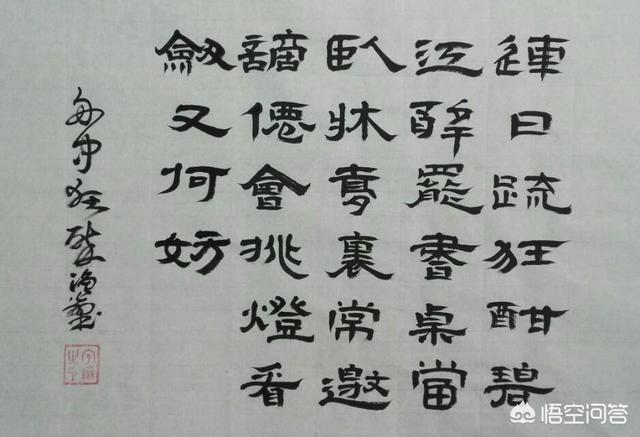 連日疏狂酣碧
江醉罷書桌當
臥牀夢裏常邀
謫僊會挑燈看
劔又何妨
悟空问答